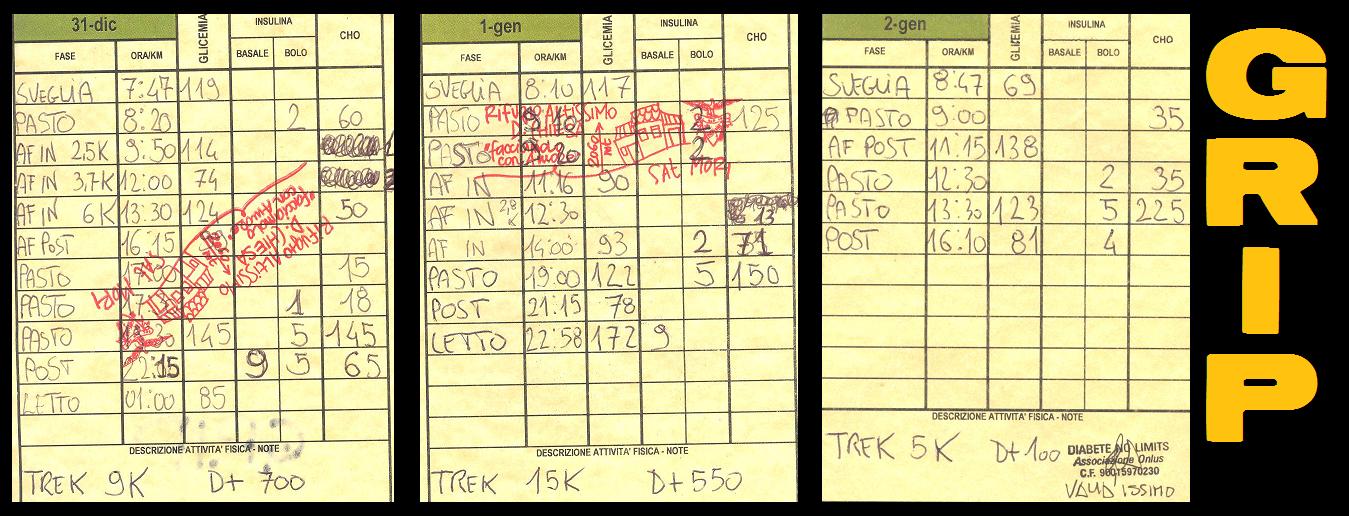 31-dic
GLICEMIA
INSULINA
CHO
FASE ORA/KM BASALE BOLO
SVEGLIA 7:47 119
PASTO 8:20 2 60
AF IN 2,5K 9:50 114
AF IN 3,7K 12:00 74
AF IN 6K 13:30 124 50
AF POST 16:15
PASTO 17:00 15
PASTO 1 18
PASTO 145 5 145
POST 22:15 9 5 65
LETTO 01:00 85
RIFUGIO ALTISSIMO
D. CHIESA
"facciamolo
con Amore"
SAT MORI
DESCRIZIONE ATTIVITA' FISICA - NOTE
TREK 9K D+ 700
1-gen
GLICEMIA
INSULINA
CHO
FASE ORA/KM BASALE BOLO
SVEGLIA 8:10 117
PASTO 2 125
PASTO 2
AF IN 11:16 90
AF IN 2,8K 12:30 13
AF IN 14:00 93 2 71
PASTO 19:00 122 5 150
POST 21:15 78
LETTO 22:58 172 9
Rifugio ALTISSIMO
D. CHIESA
"facciamolo
con Amore"
2060 mt
SAT MORI
DESCRIZIONE ATTIVITA' FISICA - NOTE
TREK 15K D+ 550
2-gen
GLICEMIA
INSULINA
CHO
FASE ORA/KM BASALE BOLO
SVEGLIA 8:47 69
PASTO 9:00 35
AF POST 11:15 138
PASTO 12:30 2 35
PASTO 13:30 123 5 225
POST 16:10 81 4
DESCRIZIONE ATTIVITA' FISICA - NOTE
TREK 5K D+ 100
DIABETE NO LIMITS
Associazione Onlus
C.F. 90015970230
VALIDISSIMO
GRIP